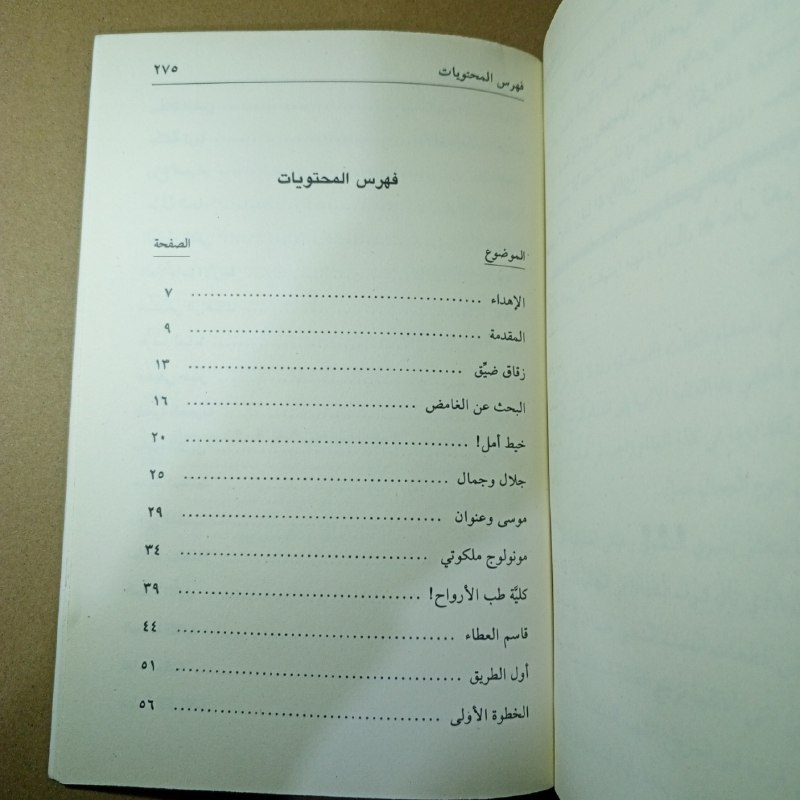 فهرس المحتويات ٢٧٥
فهرس المحتويات
الموضوع الصفحة
الإهداء ........................................ ٧
المقدمة ........................................ ٩
زقاق ضيِّق ........................................ ١٣
البحث عن الغامض ................................ ١٦
خيط أمل! ........................................ ٢٠
جلال وجمال ...................................... ٢٥
موسى وعنوان ..................................... ٢٩
مونولوج ملكوتي ................................... ٣٤
كليَّة طب الأرواح! ................................ ٣٩
قاسم العطاء ...................................... ٤٤
أول الطريق ....................................... ٥١
الخطوة الأولى ..................................... ٥٦